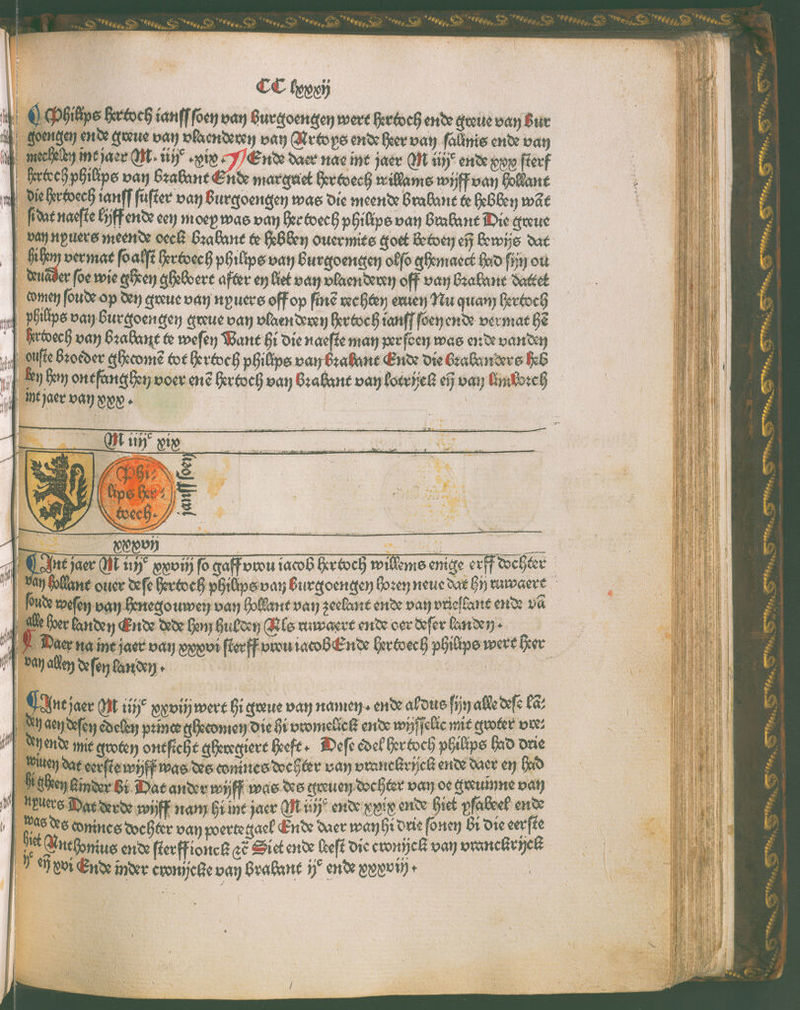 CC lxxxij
Philips hertoch ianss soen van burgoengen wert hertoch ende greue van bur
goengen ende greue van vlaenderen van Artoys ende heer van salinis ende van
mechelen int jaer M. iiijᶜ .xix. Ende daer nae int jaer M iiijᶜ ende xxx sterf
hertoch philips van brabant Ende margriet hertoech willams wijff van hollant
die hertoech ianss suster van burgoengen was die meende brabant te hebben wāt
si dat naeste lijff ende een moey was van hertoech philips van brabant Die greue
van nyuers meende oeck brabant te hebben ouermits goet betoen eñ bewijs dat
hi hem vermat so alst hertoech philips van burgoengen also ghemaect had sijn ou
deuader soe wie gheen gheboert after en liet van vlaenderen off van brabant dattet
comen soude op den greue van nyuers off op sinē rechten eruen Nu quam hertoch
philips van burgoengen greue van vlaenderen hertoch ianss soen ende vermat hē
hertoech van brabant te wesen Want hi die naeste man persoen was ende van den
outste broeder ghecomē tot hertoch philips van brabant Ende die brabanders heb
ben hem ontfanghen voer enē hertoch van brabant van lotrijck eñ van limborch
int jaer van xxx .
M iiijᶜ xix
Phi=
lips her=
toech.
ianss soen
xxxvij
Int jaer M iiijᶜ xxviij so gaff vrou iacob hertoch willems enige erff dochter
van hollant ouer dese hertoch philips van burgoengen horen neue dat hy ruwaert
soude wesen van henegouwen van hollant van zeelant ende van vrieslant ende vā
alle hoer landen Ende dede hem hulden Als ruwaert ende oer deser landen .
Daer na int jaer van xxxvi sterff vrou iacob Ende hertoech philips wert heer
van allen desen landen .
Int jaer M iiijᶜ xxviij wert hi greue van namen . ende aldus sijn alle dese lā=
den aen desen edelen prince ghecomen die hi vromelick ende wijsselic mit groter vre=
den ende mit groten ontsicht gheregiert heeft . Dese edel hertoch philips had drie
wiuen dat eerste wijff was des conincs dochter van vranckrijck ende daer en had
hi gheen kinder bi Dat ander wijff was des greuen dochter van oe greuinne van
nyuers Dat derde wijff nam hi int jaer M iiijᶜ ende xxix ende hiet ysabeel ende
was des conincs dochter van poertegael Ende daer wan hi drie sonen bi die eerste
hiet Anthonius ende sterff ionck zē Siet ende leest die cronijck van vranckrijck
ijᶜ eñ xvi Ende inder cronijcke van brabant ijᶜ ende xxxviij .